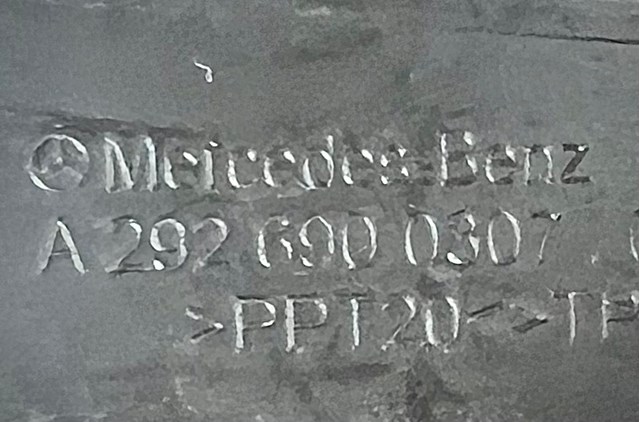 Mercedes-Benz
A 292 690 0307
>PPT20<>TP